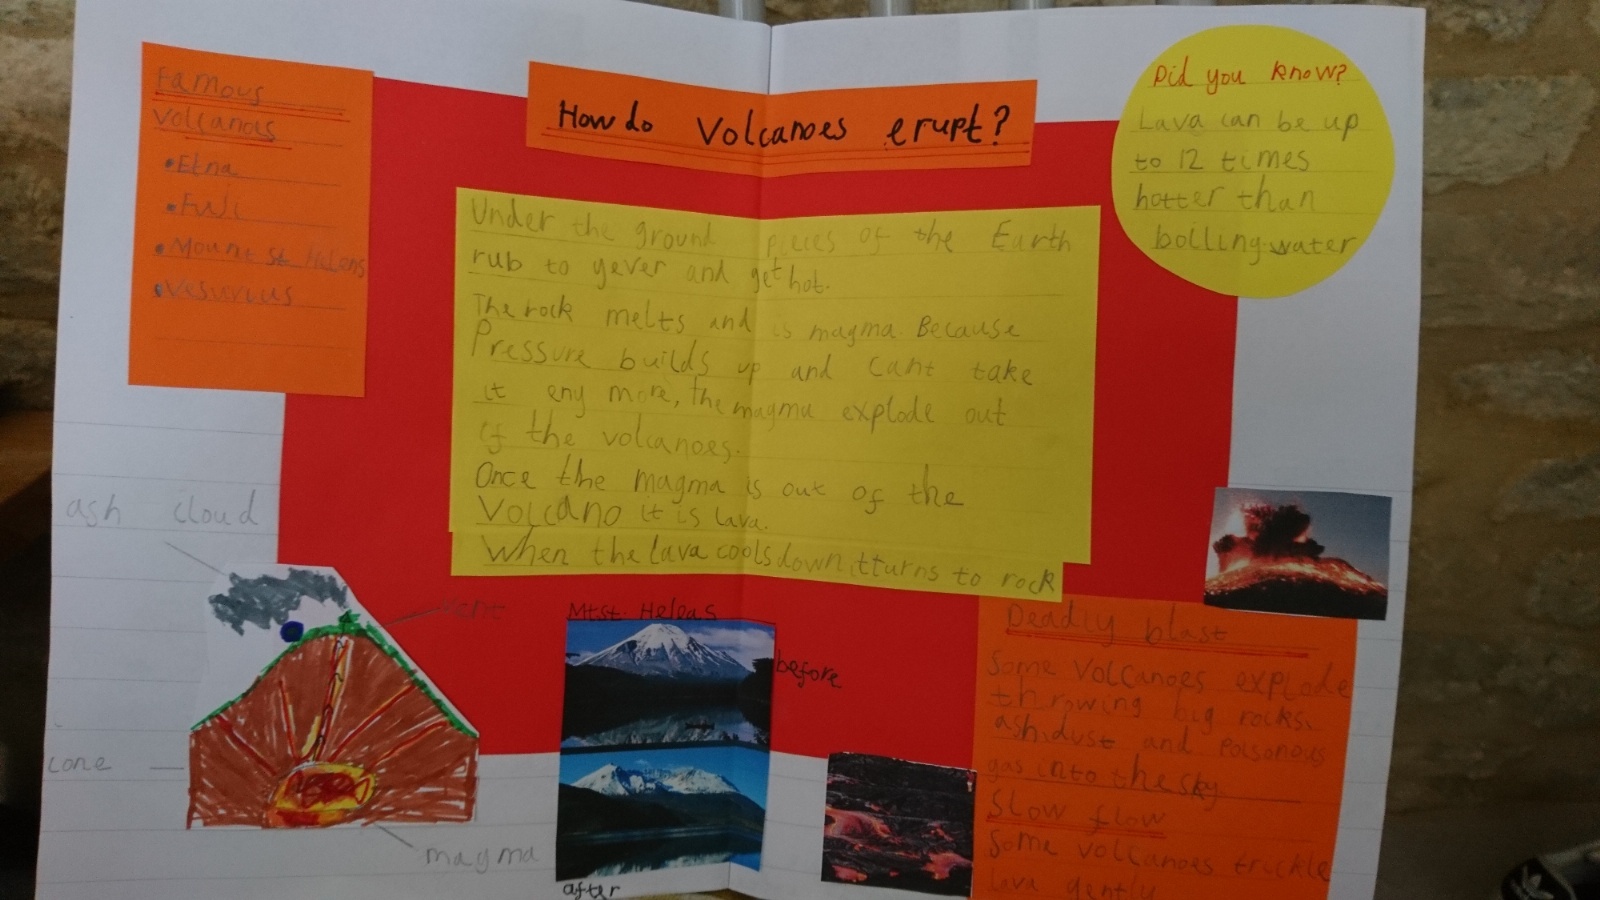 Famous
Volcanoes
•Etna
•Fuji
•Mount St Helens
•Vesuvius
How do Volcanoes erupt?
Did you know?
Lava can be up
to 12 times
hotter than
boilling water
Under the ground pieces of the Earth
rub to gever and get hot.
The rock melts and is magma. Because
Pressure builds up and cant take
it eny more, the magma explode out
of the volcanoes.
Once the magma is out of the
Volcano it is lava.
When the lava cools down it turns to rock
ash cloud
vent
cone
magma
Mt st. Helens
before
after
Deadly blast
Some Volcanoes explode
throwing big rocks,
ash, dust and poisonous
gas into the sky
Slow flow
Some volcanoes trickle
lava gently